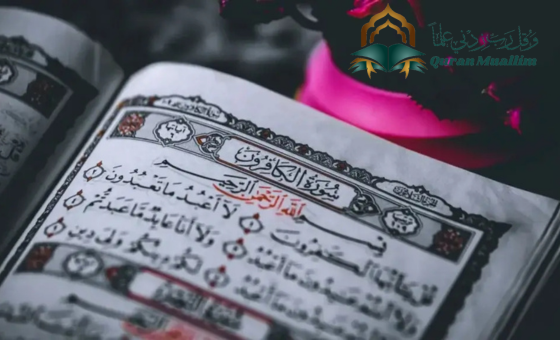 وَقُل رَّبِّ زِدْنِي عِلْمًا
Quran Muallim
سُورَةُ الْكَافِرُونَ
بِسْمِ اللَّهِ الرَّحْمَٰنِ الرَّحِيمِ
قُلْ يَا أَيُّهَا الْكَافِرُونَ ۝ لَا أَعْبُدُ مَا تَعْبُدُونَ ۝
وَلَا أَنتُمْ عَابِدُونَ مَا أَعْبُدُ ۝ وَلَا أَنَا عَابِدٌ مَّا عَبَدتُّمْ ۝
وَلَا أَنتُمْ عَابِدُونَ مَا أَعْبُدُ ۝ لَكُمْ دِينُكُمْ وَلِيَ دِينِ ۝